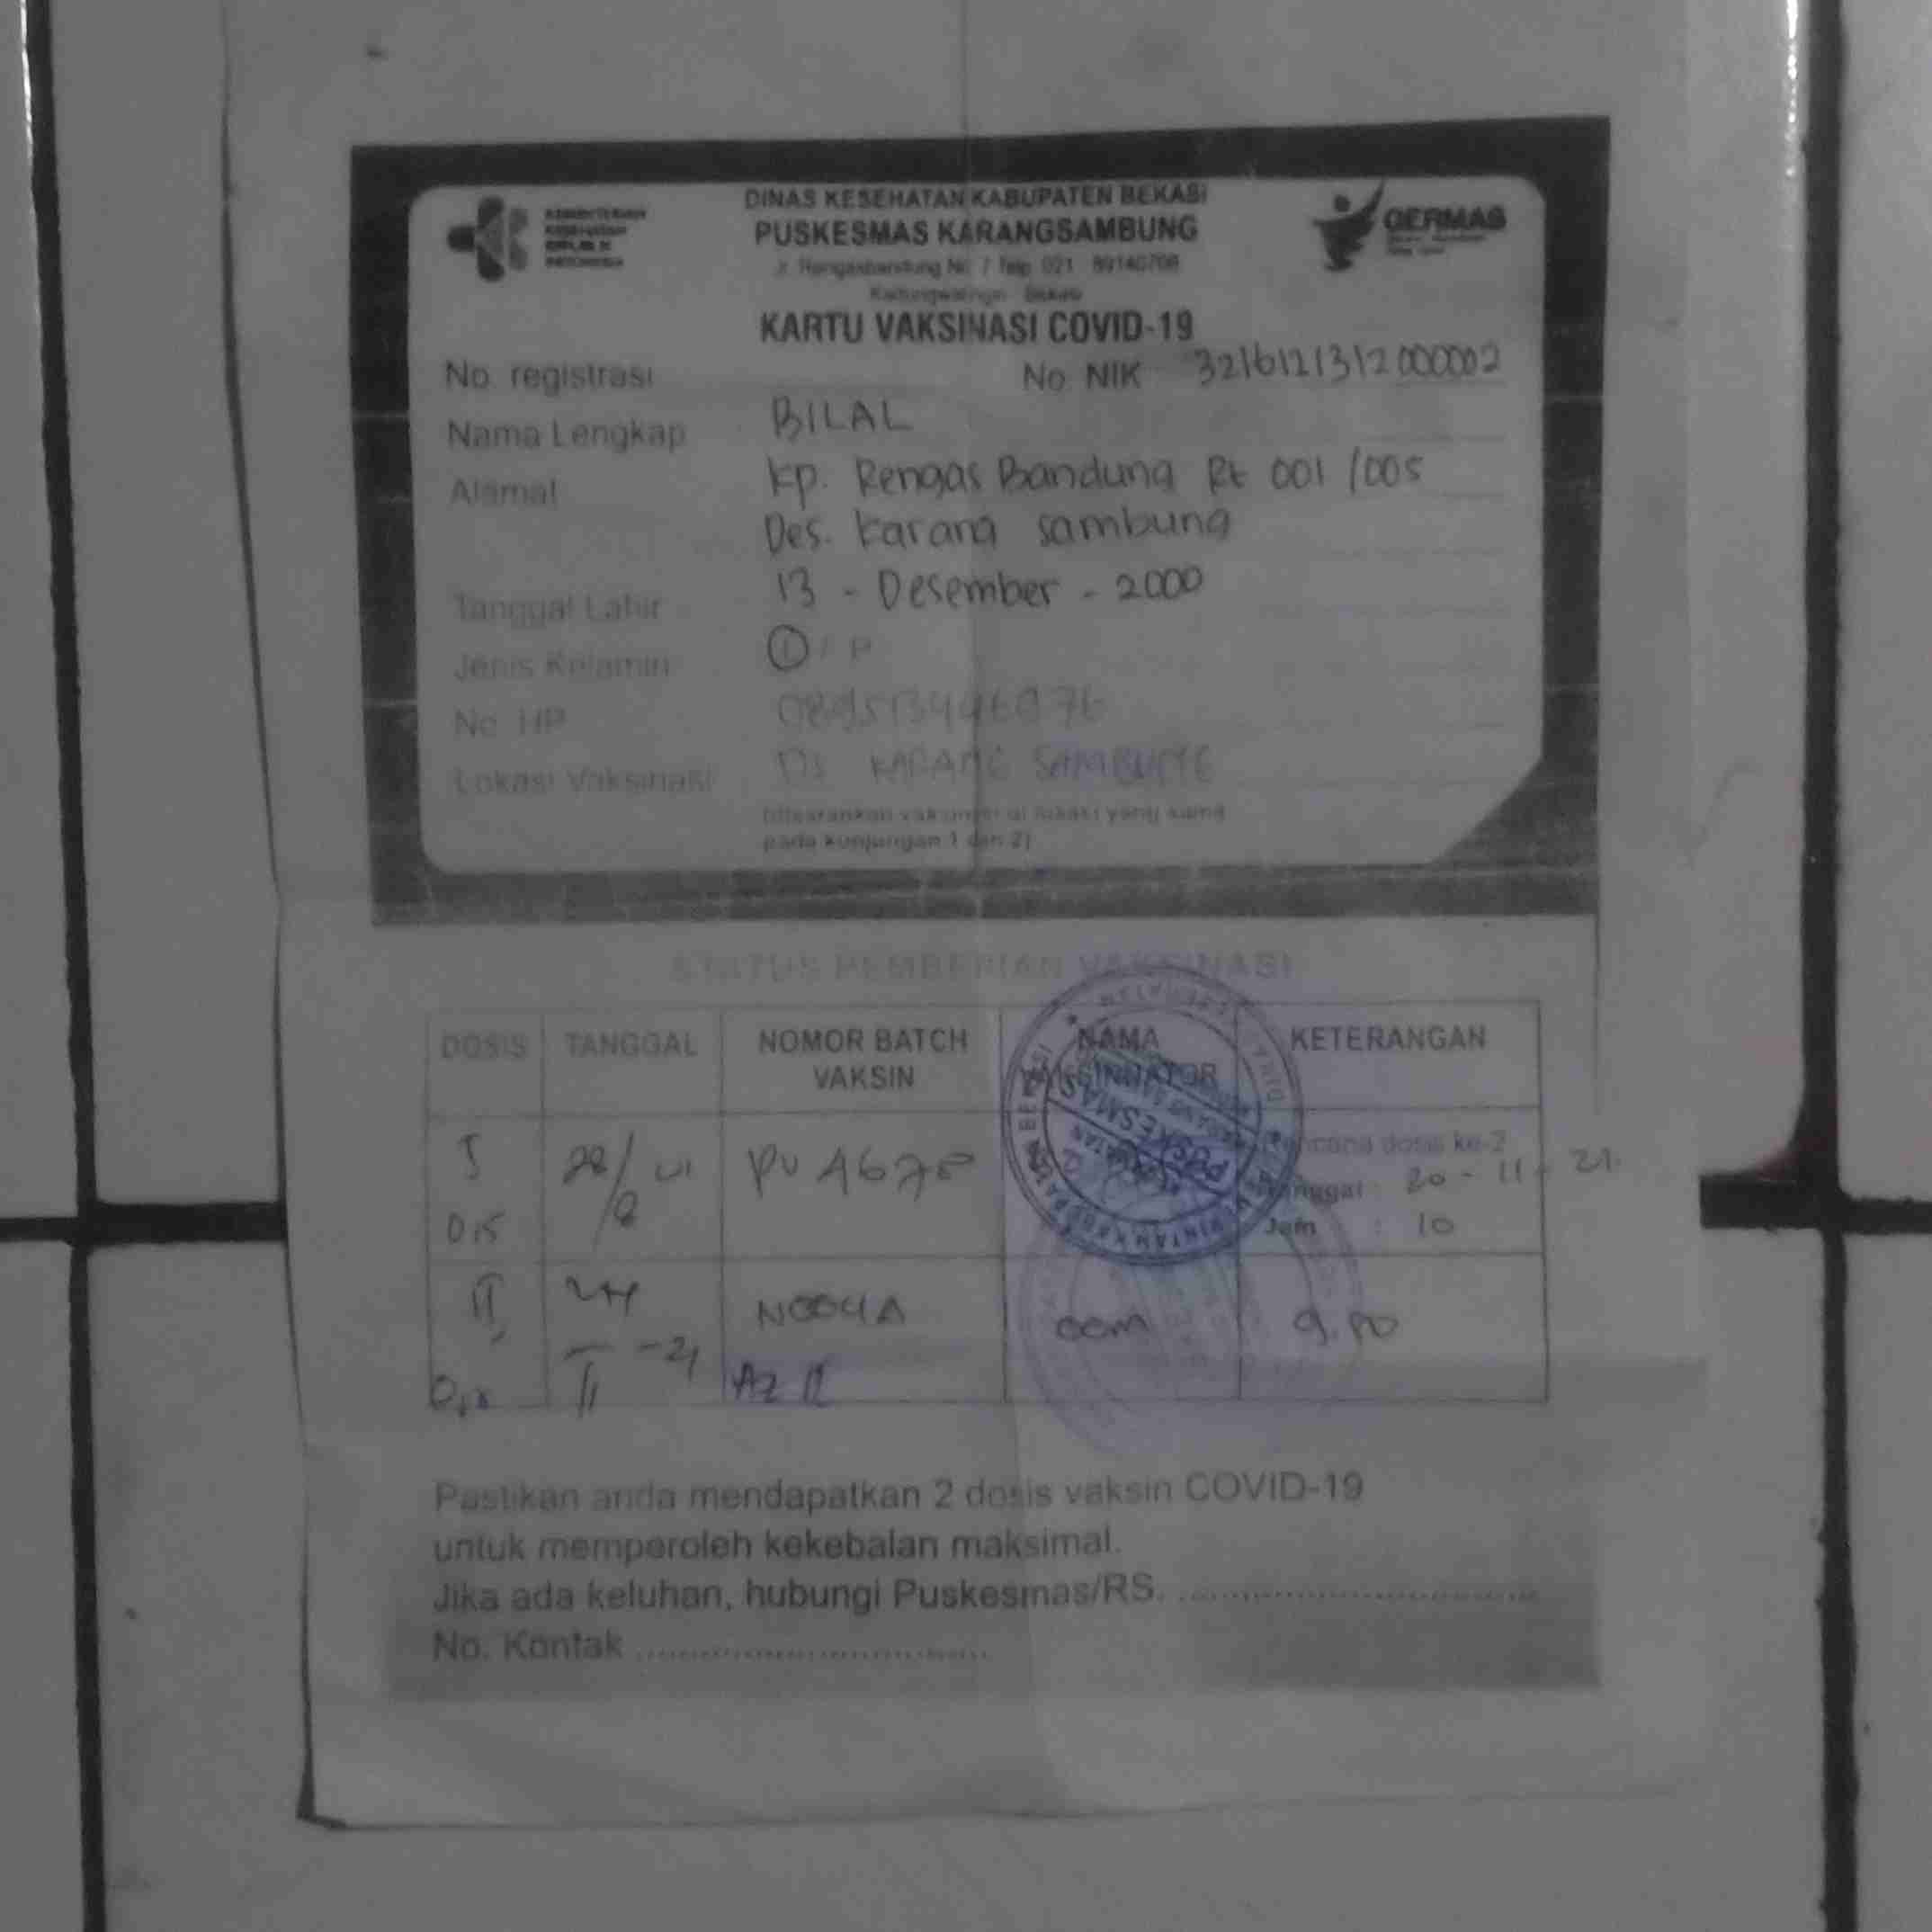 KEMENTERIAN
KESEHATAN
REPUBLIK
INDONESIA
DINAS KESEHATAN KABUPATEN BEKASI
PUSKESMAS KARANGSAMBUNG
Jl. Rengasbandung No. 7 Telp. 021 - 89140708
Kedungwaringin - Bekasi
GERMAS
KARTU VAKSINASI COVID-19
No. registrasi No NIK 3216121312000002
Nama Lengkap BILAL
Alamat Kp. Rengas Bandung Rt 001 /005
Des. Karang sambung
Tanggal Lahir 13 - Desember - 2000
Jenis Kelamin L / P
No HP
Lokasi Vaksinasi Ds KARANG SAMBUNG
(disarankan vaksinasi di lokasi yang sama
pada kunjungan 1 dan 2)
STATUS PEMBERIAN VAKSINASI
DOSIS TANGGAL NOMOR BATCH VAKSIN NAMA VAKSINNATOR KETERANGAN
I 0,5 Rencana dosis ke-2
Tanggal : 20 - 11 - 21
Jam : 10
II
AZ II
PUSKESMAS
Pastikan anda mendapatkan 2 dosis vaksin COVID-19
untuk memperoleh kekebalan maksimal.
Jika ada keluhan, hubungi Puskesmas/RS. ..............................
No. Kontak ..............................